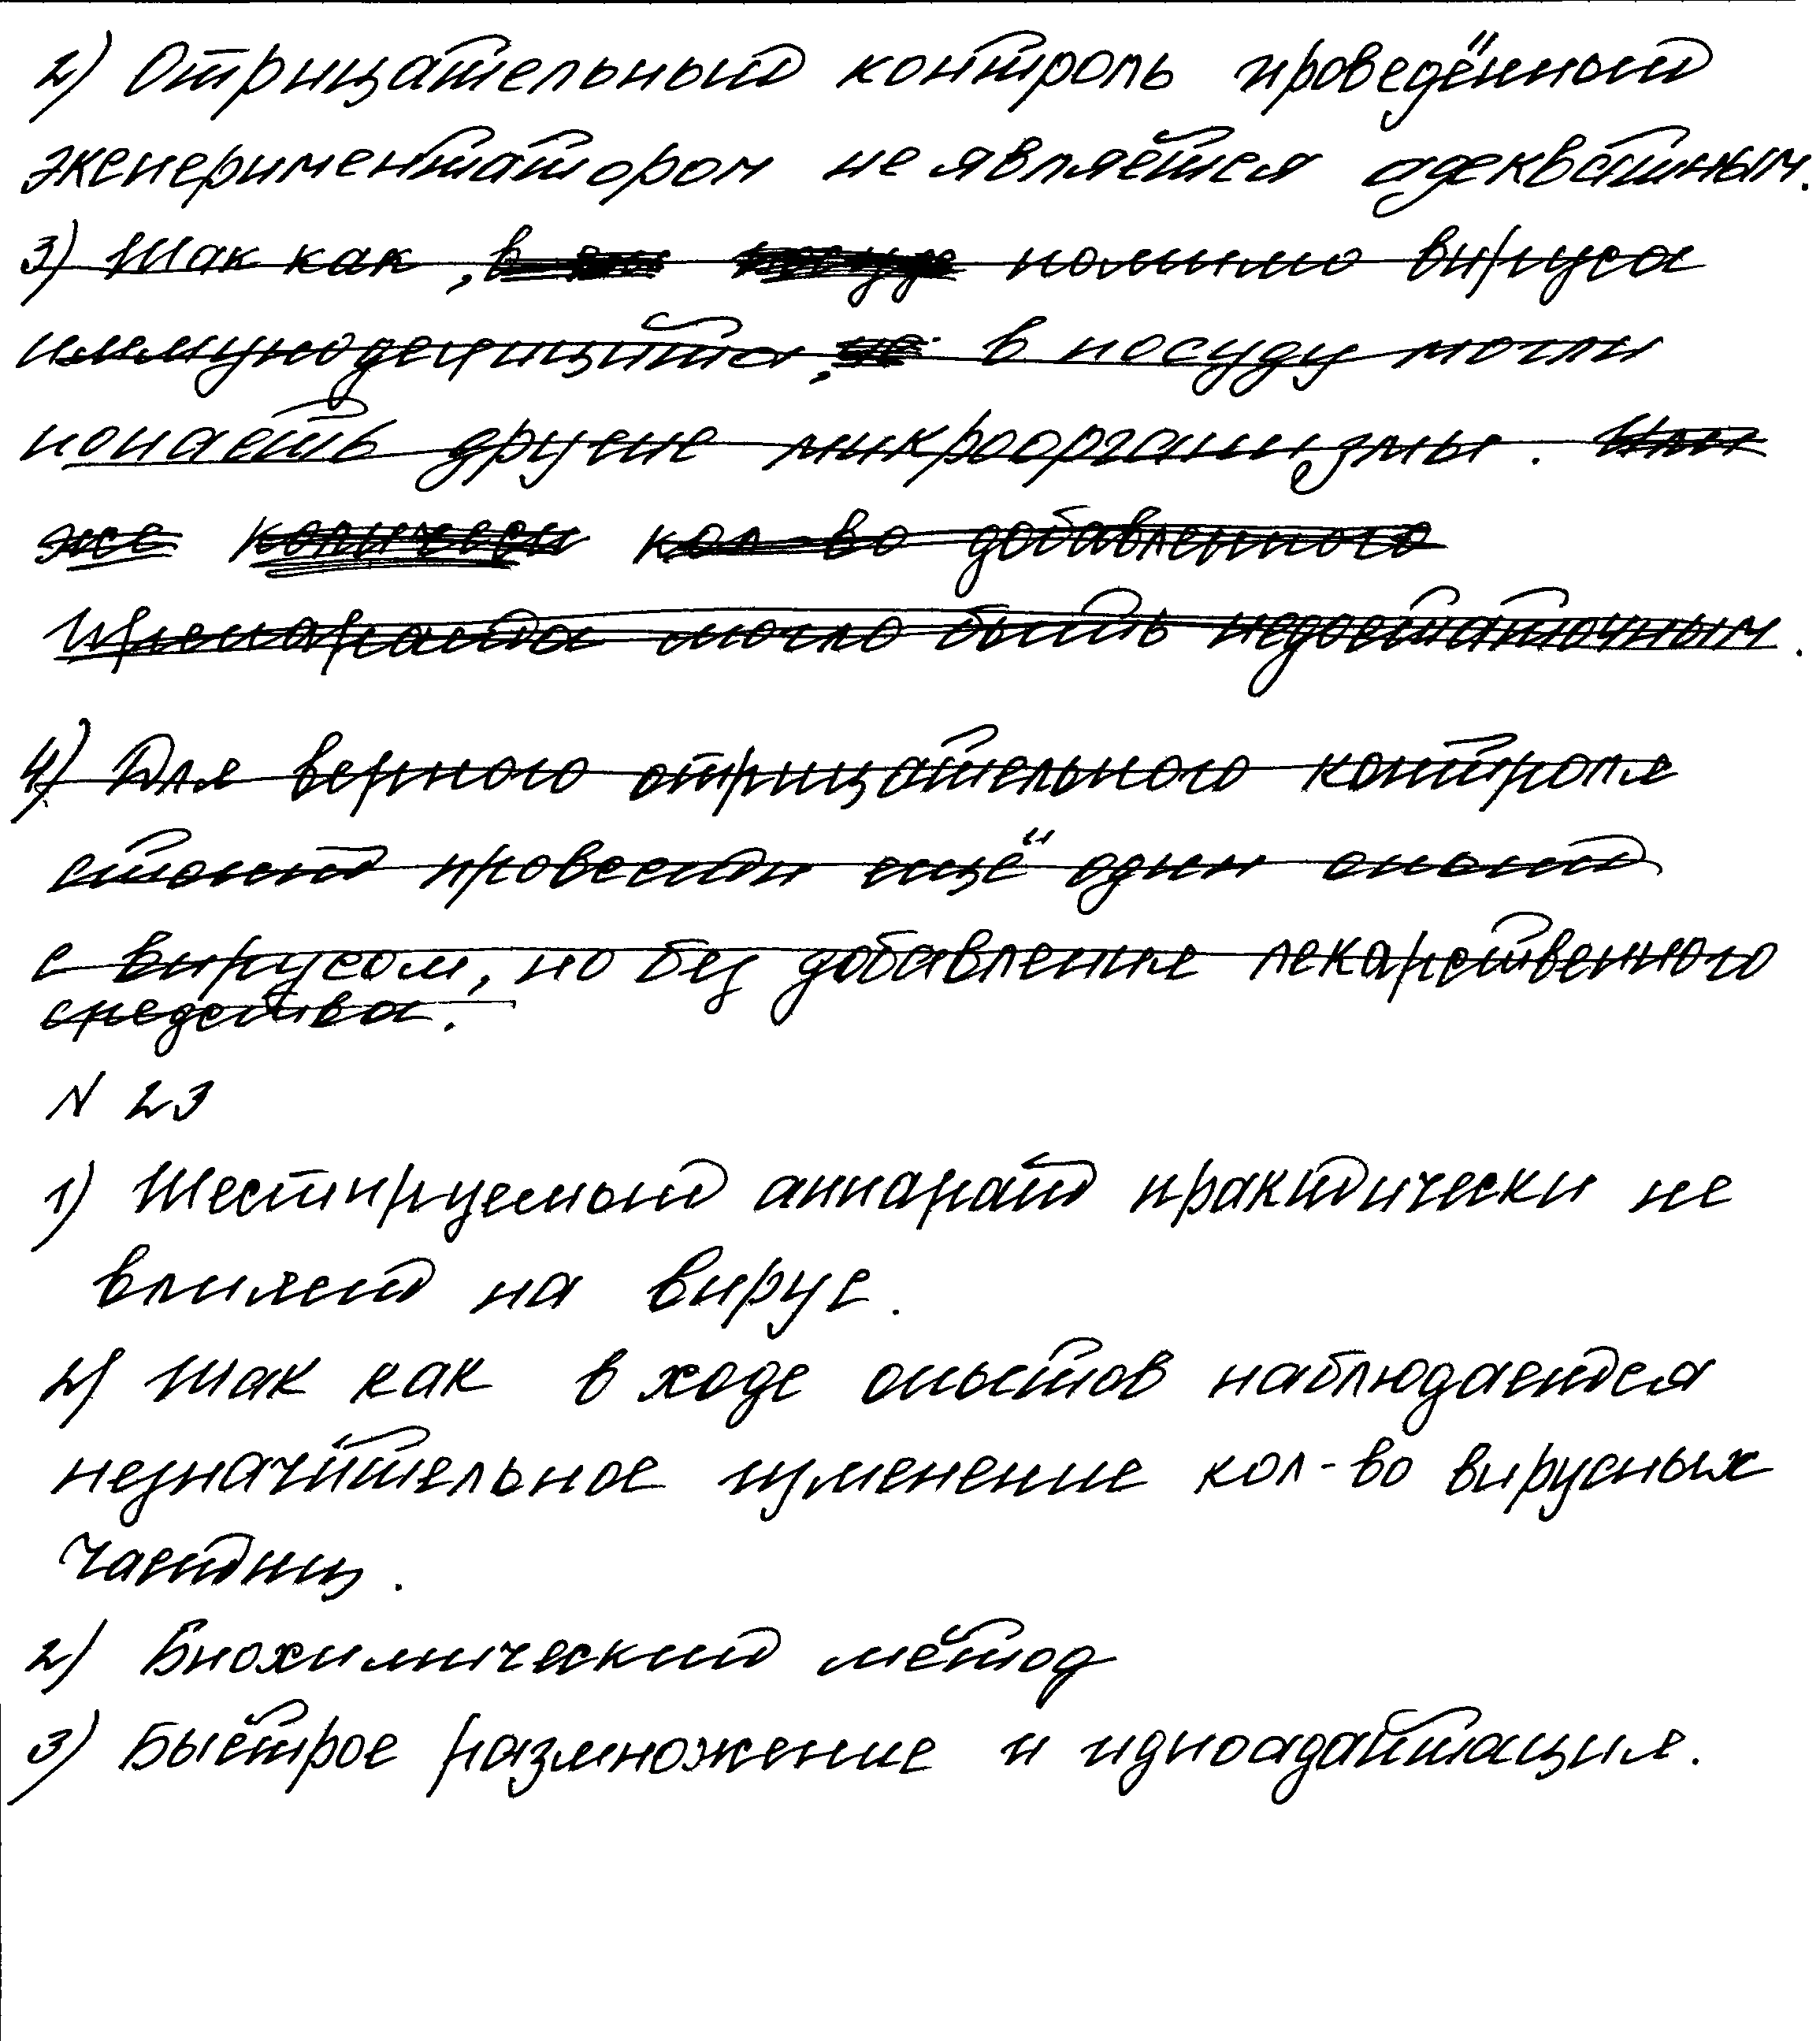 2) Отрицательный контроль проведённый
экспериментатором не является адекватным.
3) Так как, в помимо вируса
иммунодефицита, не в посуду могли
попасть другие микроорганизмы. Или
же количеств кол-во добавленного
препарата могло быть недостаточным.
4) Для верного отрицательного контроля
стоит провести ещё один опыт
с вирусом, но без добавления лекарственного
средства.
N 23
1) Тестируемый аппарат практически не
влияет на вирус.
2) Так как в ходе опытов наблюдается
незначительное изменение кол-во вирусных
частиц.
2) Биохимический метод
3) Быстрое размножение и идиоадаптация.